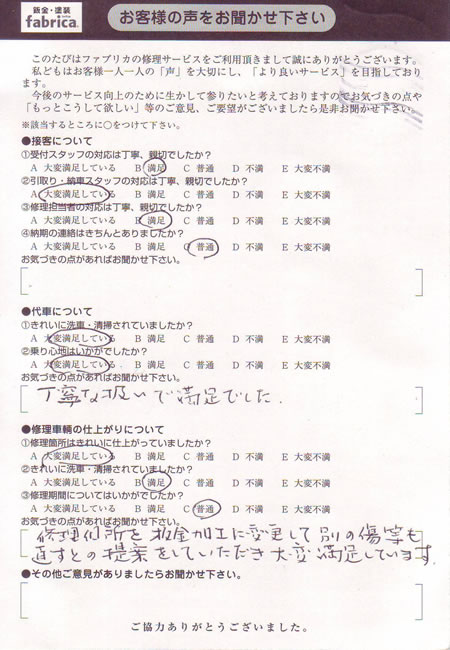 鈑金・塗装
fabrica.
お客様の声をお聞かせ下さい
このたびはファブリカの修理サービスをご利用頂きまして誠にありがとうございます。
私どもはお客様一人一人の「声」を大切にし、「より良いサービス」を目指しております。
今後のサービス向上のために生かして参りたいと考えておりますのでお気づきの点や
「もっとこうして欲しい」等のご意見、ご要望がございましたら是非お聞かせ下さい。
※該当するところに○をつけて下さい。
●接客について
①受付スタッフの対応は丁寧、親切でしたか?
A 大変満足している B 満足 C 普通 D 不満 E 大変不満
②引取り・納車スタッフの対応は丁寧、親切でしたか?
A 大変満足している B 満足 C 普通 D 不満 E 大変不満
③修理担当者の対応は丁寧、親切でしたか?
A 大変満足している B 満足 C 普通 D 不満 E 大変不満
④納期の連絡はきちんとありましたか?
A 大変満足している B 満足 C 普通 D 不満 E 大変不満
お気づきの点があればお聞かせ下さい。
●代車について
①きれいに洗車・清掃されていましたか?
A 大変満足している B 満足 C 普通 D 不満 E 大変不満
②乗り心地はいかがでしたか?
A 大変満足している B 満足 C 普通 D 不満 E 大変不満
お気づきの点があればお聞かせ下さい。
丁寧な扱いで満足でした.
●修理車輌の仕上がりについて
①修理箇所はきれいに仕上がっていましたか?
A 大変満足している B 満足 C 普通 D 不満 E 大変不満
②きれいに洗車・清掃されていましたか?
A 大変満足している B 満足 C 普通 D 不満 E 大変不満
③修理期間についてはいかがでしたか?
A 大変満足している B 満足 C 普通 D 不満 E 大変不満
お気づきの点があればお聞かせ下さい。
修理個所を板金加工に変更して別の傷等も
直すとの提案をしていただき大変満足しています.
●その他ご意見がありましたらお聞かせ下さい。
ご協力ありがとうございました。